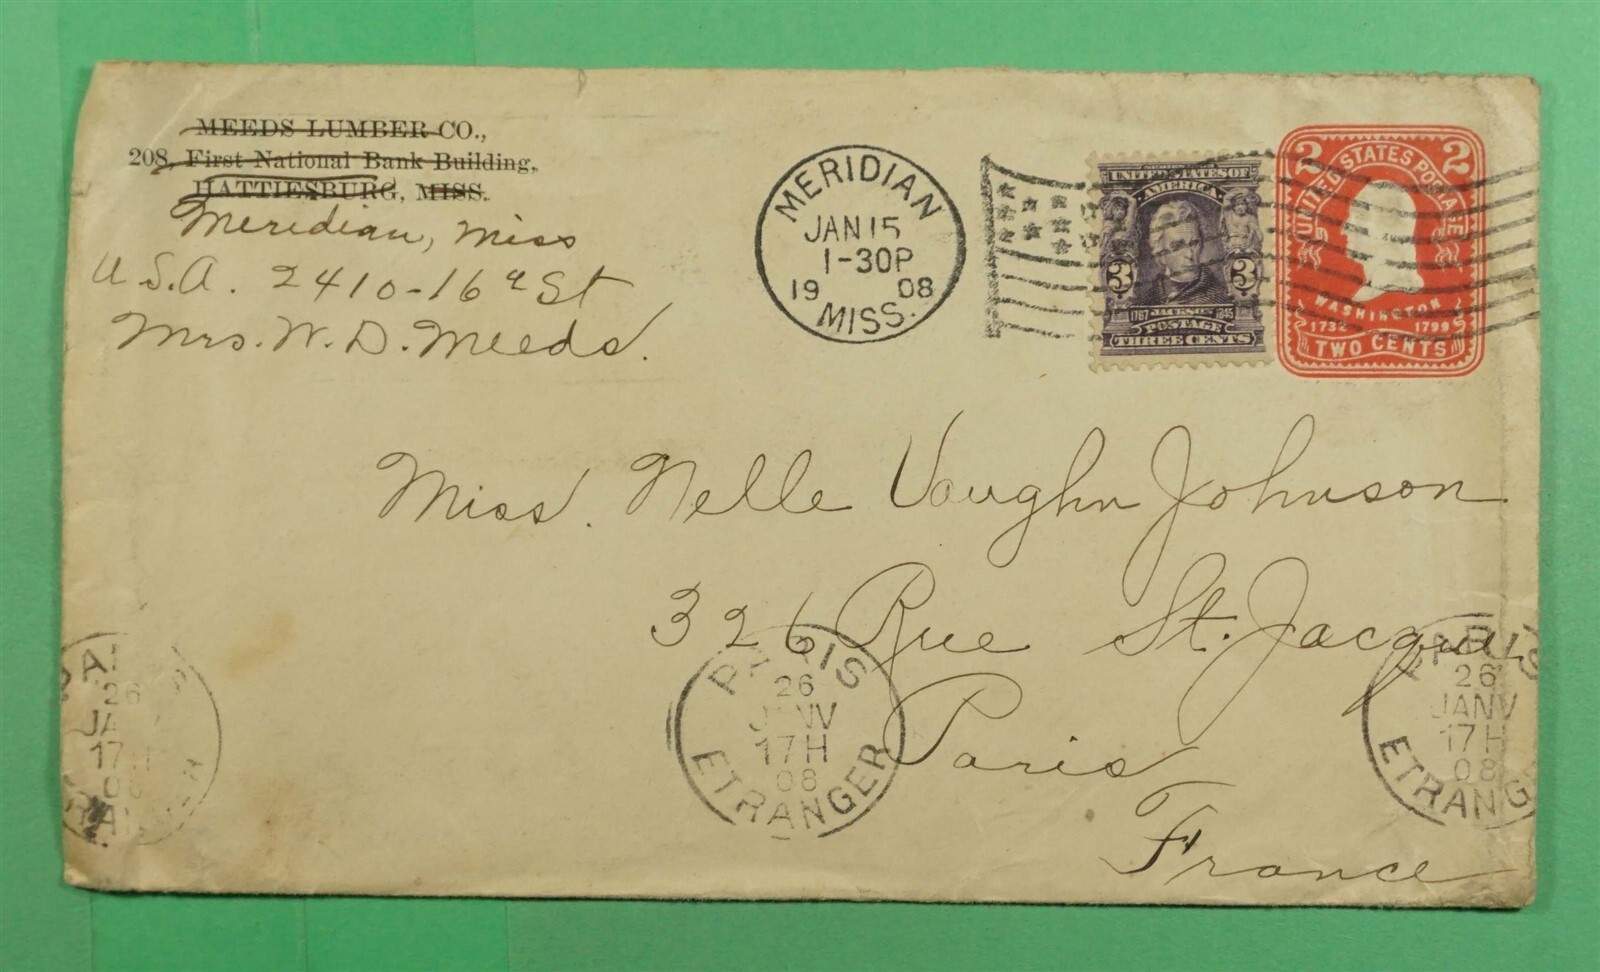 MEEDS LUMBER CO.,
208, First National Bank Building,
HATTIESBURG, MISS.
Meridian, Miss
U.S.A. 2410-16th St
Mrs. W. D. Meeds.
MERIDIAN
JAN 15
1-30P
19 08
MISS.
UNITED STATES OF
AMERICA
3 3
1767 JACKSON 1845
POSTAGE
THREE CENTS
2 UNITED STATES POSTAGE 2
WASHINGTON
1732 1799
TWO CENTS
Miss. Nelle Vaughn Johnson
326 Rue St. Jacques
Paris
France
PARIS
26
JANV
17H
08
ETRANGER
PARIS
26
JANV
17H
08
ETRANGER
PARIS
26
JANV
17H
08
ETRANGER